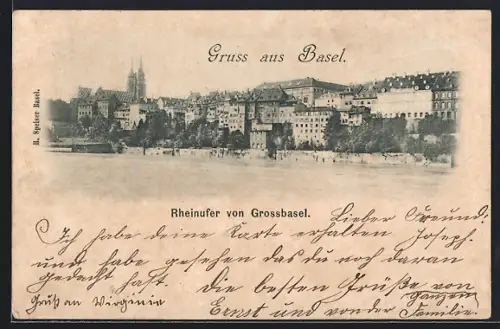 Gruss aus Basel.
H. Speiser Basel.
Rheinufer von Grossbasel.
Lieber Freund.
Joseph.
Ich habe deine Karte erhalten
und habe gesehen das du noch daran
gedacht hast. Die besten Grüße von
Ernst und von der ganzen
Familie.
Gruß an Virginie